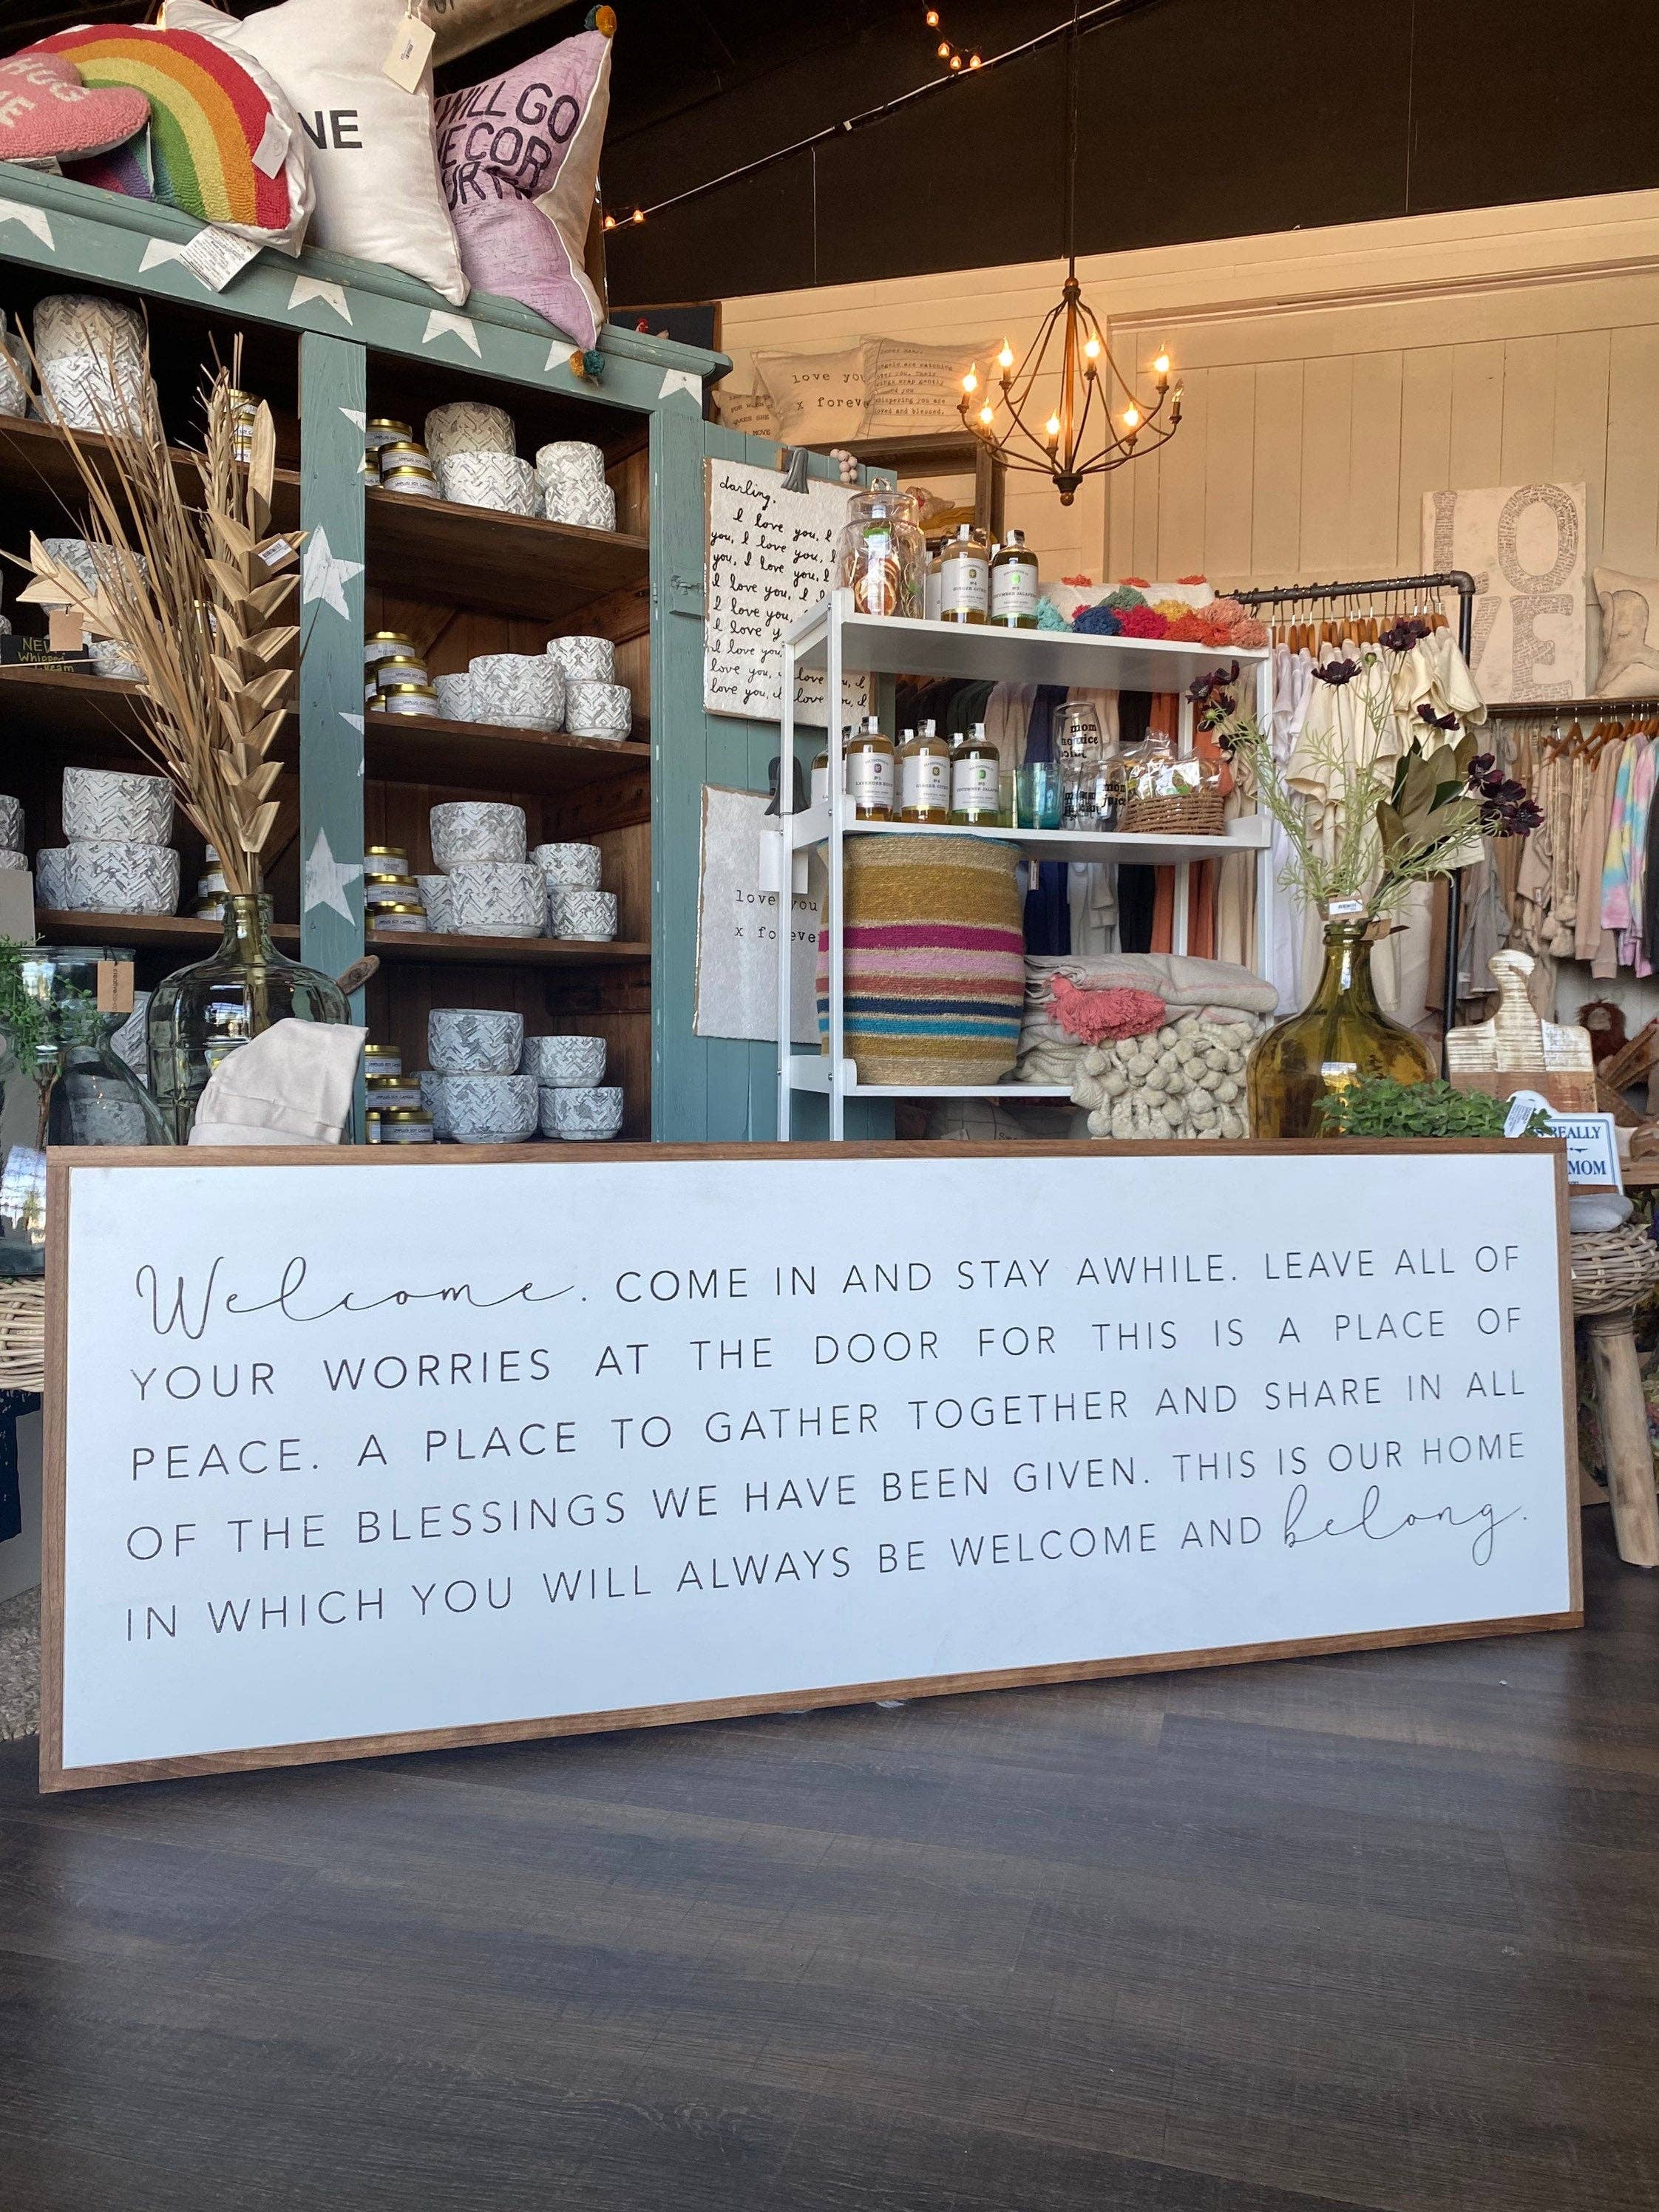 HUG
NE
WILL GO
love you
x forever
darling,
I love you, I
you, I love you,
you, I love you, I
I love you, I
love you,
I love
I love you,
love you, I love you, I
love you, I love you, I
LOVE
NEW
Whipped
mom
juice
mom
juice
love you
x forever
REALLY
MOM
Welcome. COME IN AND STAY AWHILE. LEAVE ALL OF
YOUR WORRIES AT THE DOOR FOR THIS IS A PLACE OF
PEACE. A PLACE TO GATHER TOGETHER AND SHARE IN ALL
OF THE BLESSINGS WE HAVE BEEN GIVEN. THIS IS OUR HOME
IN WHICH YOU WILL ALWAYS BE WELCOME AND belong.